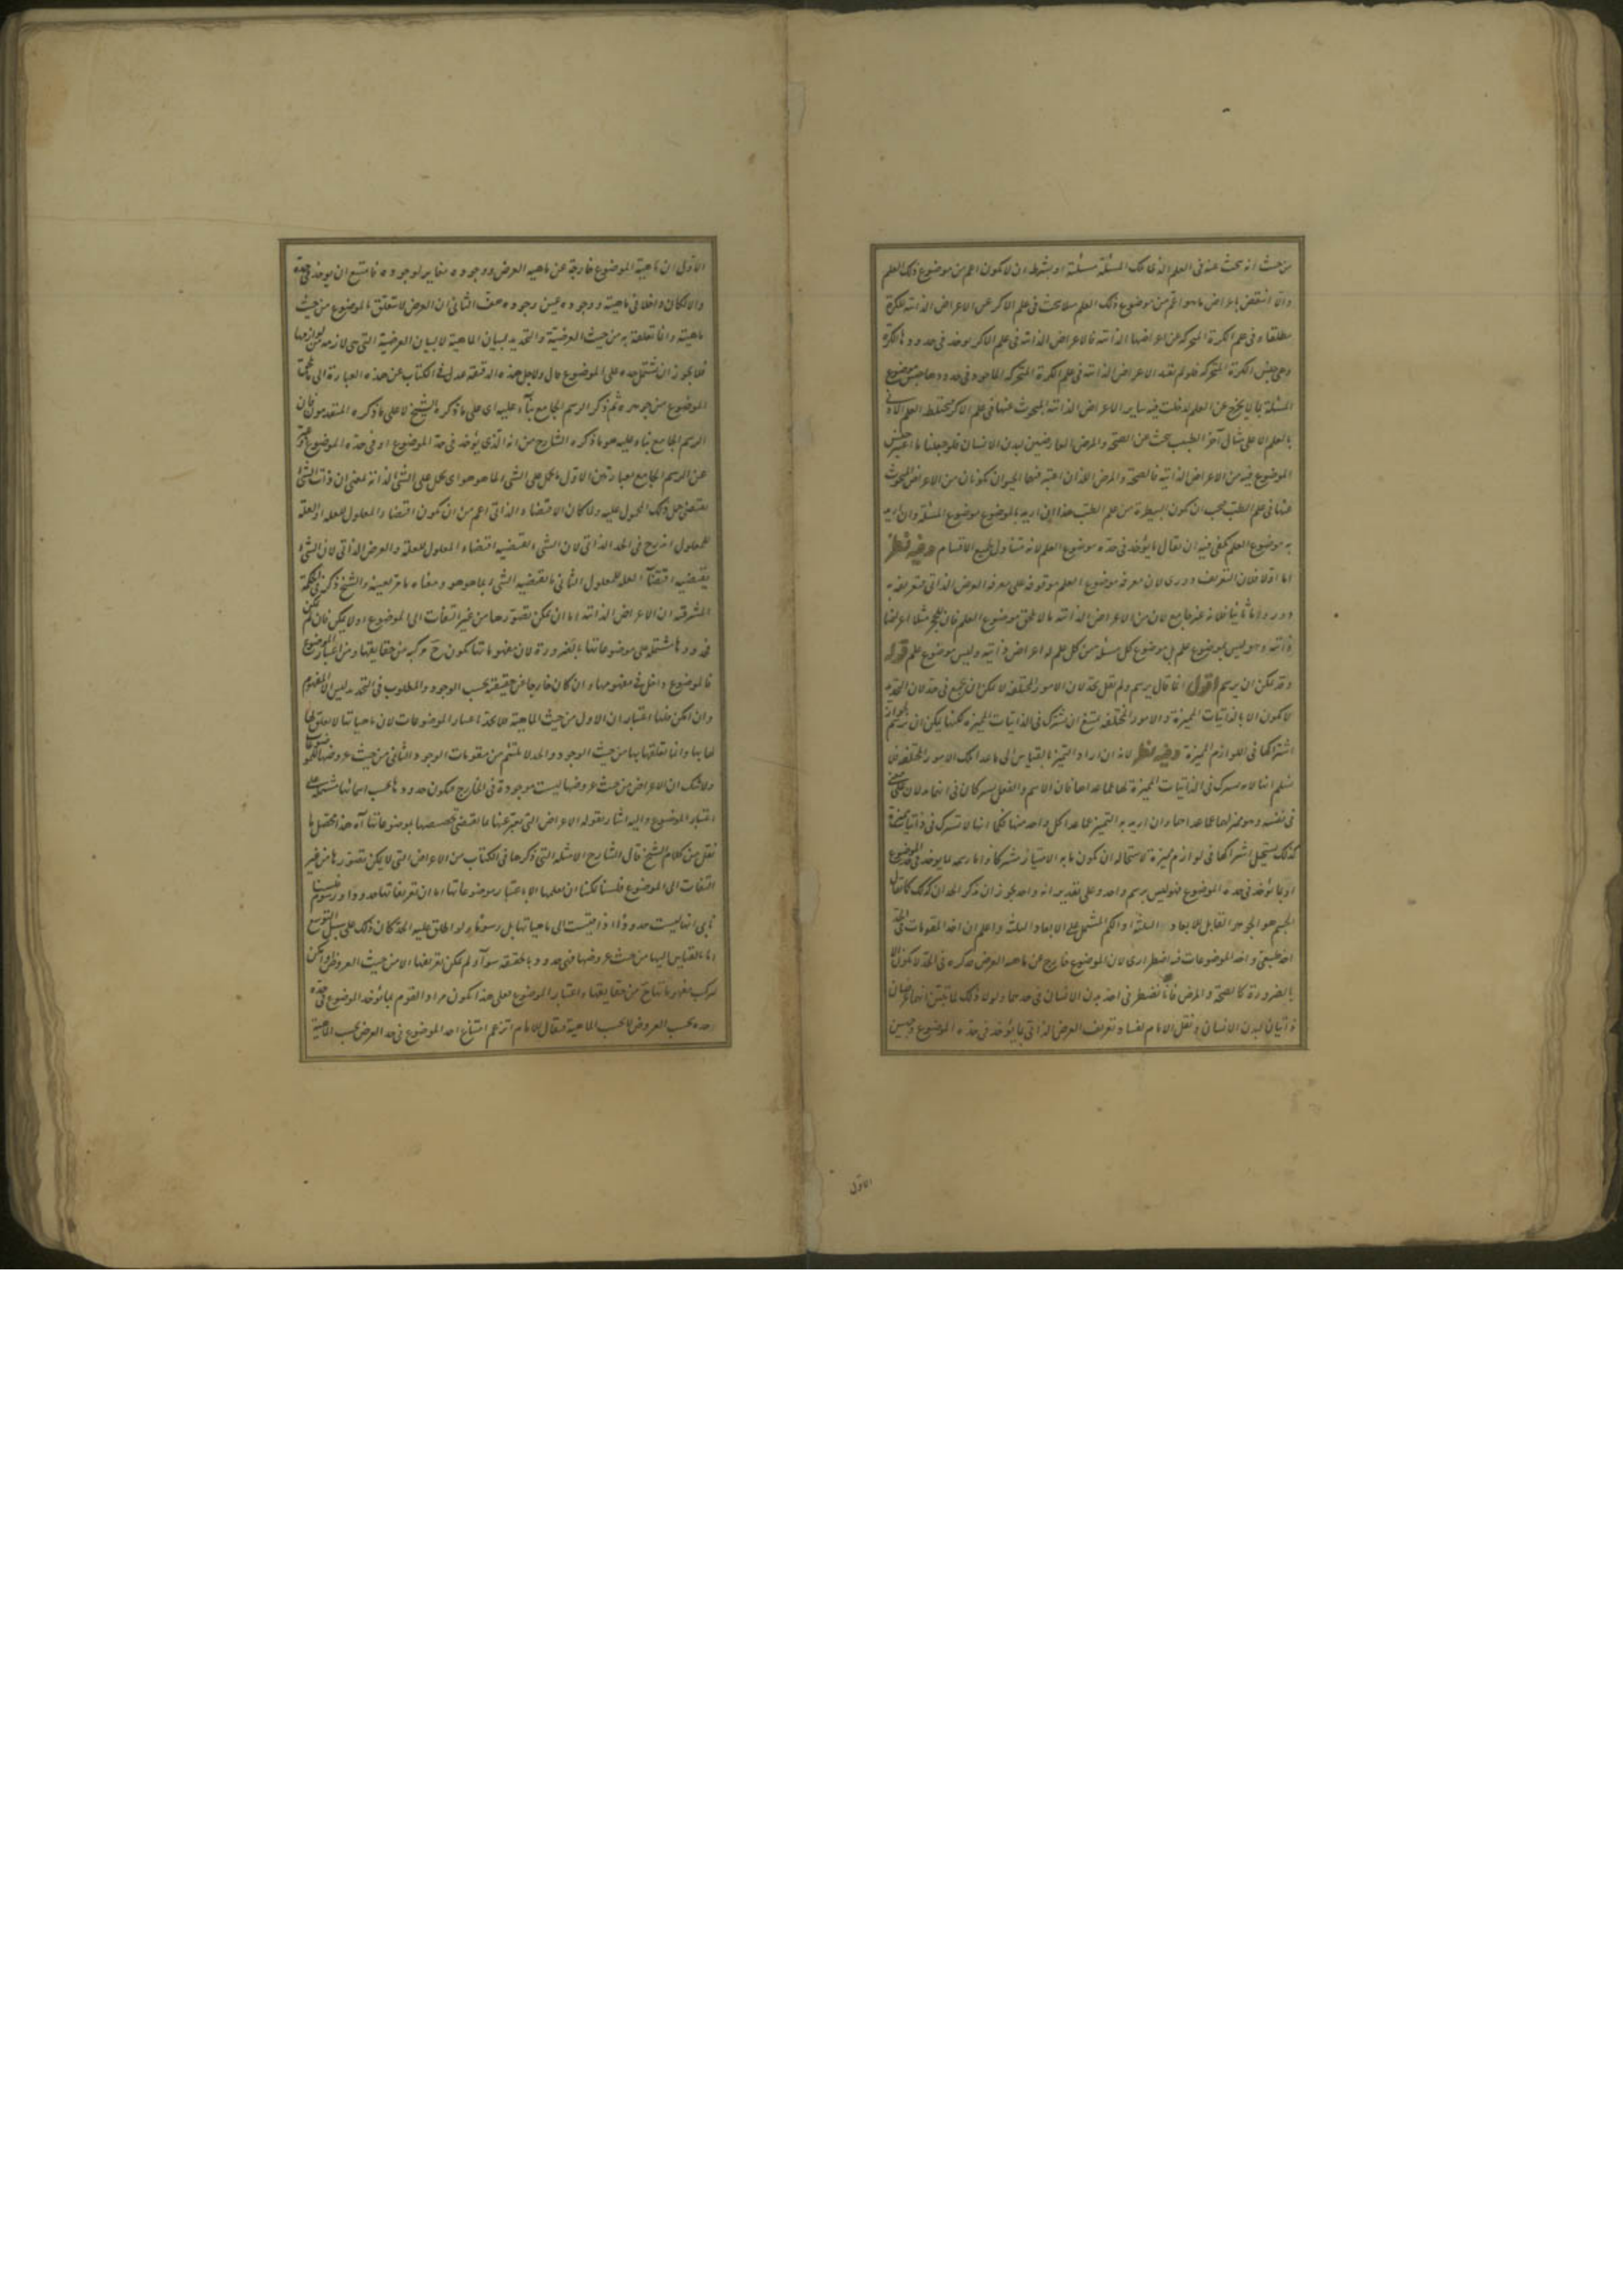 من حيث انه يبحث عنه فى العلم الذى تلك المسئلة مسئلة او بشرط ان لا يكون اعم من موضوع ذلك العلم
والا انتقض باعراض ما هو اعم من موضوع ذلك العلم مثلا يبحث فى علم الاكر عن الاعراض الذاتية للكرة
مطلقا وفى علم الكرة المتحركة عن اعراضها الذاتية فالاعراض الذاتية فى علم الاكر يوخذ فى حدودها الكرة
وهى جنس الكرة المتحركة فلو لم نقيد الاعراض الذاتية فى علم الكرة المتحركة بالماخوذ فى حدودها جنس موضوع
المسئلة بان لا يخرج عن العلم لدخلت فيه ساير الاعراض الذاتية المبحوث عنها فى علم الاكر فيختلط العلم الادنى
بالعلم الاعلى مثال آخر الطبيب يبحث عن الصحة والمرض العارضين لبدن الانسان فلو جعلنا ما اعتبر جنس
الموضوع فيه من الاعراض الذاتية فالصحة والمرض اللذان اعتبر فيهما الحيوان يكونان من الاعراض المبحوث
عنها فى علم الطب فيجب ان يكون البيطرة من علم الطب هذا ان اريد بالموضوع موضوع المسئلة وان اريد
به موضوع العلم يكفى فيه ان يقال ما يؤخذ فى حده موضوع العلم لانه متناول لجميع الاقسام وفيه نظر
اما اولا فلان التعريف دورى لان معرفة موضوع العلم موقوفة على معرفة العرض الذاتى فتعريفه به
دور واما ثانيا فلانه غير جامع لان من الاعراض الذاتية ما لا يلحق موضوع العلم فان للحجر مثلا اعراضا
ذاتية وهو ليس بموضوع علم بل موضوع كل مسئلة من كل علم له اعراض ذاتية وليس موضوع علم قوله
وقد يمكن ان يرسم اقول انما قال يرسم ولم يقل يحد لان الامور المختلفة لا يمكن ان يجمع فى حد لان التحديد
لا يكون الا بالذاتيات المميزة والامور المختلفة يمتنع ان تشترك فى الذاتيات المميزة لكنها يمكن ان ترسم
اشتراكها فى اللوازم المميزة وفيه نظر لانه ان اراد التميز بالقياس الى ما عدا تلك الامور المختلفة فلا
نسلم انها لا تشترك فى الذاتيات المميزة لها عما عداها فان الاسم والفعل يشتركان فى انهما يدلان على معنى
فى نفسه وهو مميز لهما عما عداهما وان اريد به التميز عما عدا كل واحد منها فكما انها لا تشترك فى ذاتيات مميزة
كذلك يستحيل اشتراكها فى لوازم مميزة لاستحالة ان يكون ما به الامتياز مشتركا واما رسمه بما يوخذ فى حد الموضوع
او بما يؤخذ فى حده الموضوع فهو ليس برسم واحد وعلى تقدير انه واحد يجوز ان يذكر الحد ان كذلك كما يقال
الجسم هو الجوهر القابل للابعاد الثلثة او الكم المشتمل على الابعاد الثلث واعلم ان اخذ المقومات فى الحد
اخذ طبيعى واخذ الموضوعات فيه اضطرارى لان الموضوع خارج عن ماهية العرض فذكره فى الحد لا يكون الا
بالضرورة كالصحة والمرض فانا نضطر فى اخذ بدن الانسان فى حدهما ولولا ذلك لما تبين انهما عرضان
ذاتيان لبدن الانسان ونقل الامام لفساد تعريف العرض الذاتى بما يؤخذ فى حده الموضوع وجهين
الاول
الاول ان ماهية الموضوع خارجة عن ماهية العرض ووجوده مغاير لوجوده فامتنع ان يوخذ فى حده
والا لكان داخلا فى ماهيته ووجوده عين وجوده هف الثانى ان العرض لا يتعلق بالموضوع من حيث
ماهيته وانما تعلقه به من حيث العرضية والتحديد لبيان الماهية لا لبيان العرضية التى هى لازمة من لوازمها
فلا يجوز ان يشتمل حده على الموضوع قال ولاجل هذه الدقيقة عدل فى الكتاب عن هذه العبارة الى ما يلحق
الموضوع من جوهره ثم ذكر الرسم الجامع بناء عليه اى على ما ذكره الشيخ لا على ما ذكره المتقدمون فان
الرسم الجامع بناء عليه هو ما ذكره الشارح من انه الذى يؤخذ فى حد الموضوع او فى حده الموضوع وعبر
عن الرسم الجامع بعبارتين الاول ما يحمل على الشىء لما هو هو اى يحمل على الشىء لذاته بمعنى ان ذات الشىء
يقتضى حمل ذلك المحمول عليه ولما كان الاقتضاء الذاتى اعم من ان يكون اقتضاء المعلول للعلة او العلة
للمعلول اندرج فى الحد الذاتى لان الشىء يقتضيه اقتضاء المعلول للعلة والعرض الذاتى لان الشىء
يقتضيه اقتضاء العلة للمعلول الثانى ما يقتضيه الشىء بما هو هو ومعناه ما مر بعينه والشيخ ذكر فى الحكمة
المشرقية ان الاعراض الذاتية اما ان يمكن تصورها من غير التفات الى الموضوع او لا يمكن فان لم يمكن
فحدودها مشتملة على موضوعاتها بالضرورة لان مفهوماتها تكون ح مركبة من حقايقها ومن اعتبار الموضوع
فالموضوع داخل فى مفهومها وان كان خارجا عن حقيقته بحسب الوجود والمطلوب فى التحديد ليس الا المفهوم
وان امكن فلها اعتباران الاول من حيث الماهية فلا يحد باعتبار الموضوعات لان ماهياتها لا تعلق لها
لها بها وانما تعلقها بها من حيث الوجود والحد لا يلتئم من مقومات الوجود والثانى من حيث عروضها للموضوعات
ولا شك ان الاعراض من حيث عروضها ليست موجودة فى الخارج فيكون حدودها بحسب اسمائها مشتملة على
اعتبار الموضوع واليه اشار بقوله الاعراض التى يعبر عنها بما يقتضى تخصيصها بموضوعاتها آه هذا محصل ما
نقل من كلام الشيخ قال الشارح الامثلة التى ذكرها فى الكتاب من الاعراض التى لا يمكن تصورها من غير
التفات الى الموضوع فلسنا يمكننا ان نعقلها الا باعتبار موضوعاتها اما ان تعريفاتها حدود او رسوم
فاى انها ليست حدودا اذا قيست الى ماهياتها بل رسوما ولو اطلق عليه الحد كان ذلك على سبيل التوسع
اما بالقياس اليها من حيث عروضها فهى حدود بالحقيقة سواء لم يمكن تعريفها الا من حيث العروض او امكن
تركب مفهوماتها ح من حقايقها واعتبار الموضوع فعلى هذا يكون مراد القوم بما يؤخذ الموضوع فى حده
حده بحسب العروض لا بحسب الماهية فيقال للامام اتزعم امتناع اخذ الموضوع فى حد العرض بحسب الماهية